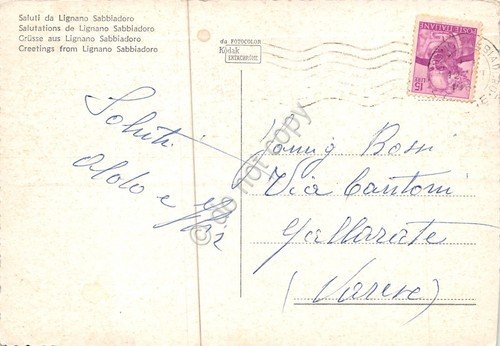 Saluti da Lignano Sabbiadoro
Salutations de Lignano Sabbiadoro
Grüsse aus Lignano Sabbiadoro
Greetings from Lignano Sabbiadoro
da FOTOCOLOR
Kodak
EKTACHROME
POSTE ITALIANE
LIRE 15
Saluti
Aldo e
Famig Bossi
Via Cantoni
Gallarate
(Varese)
© do not copy